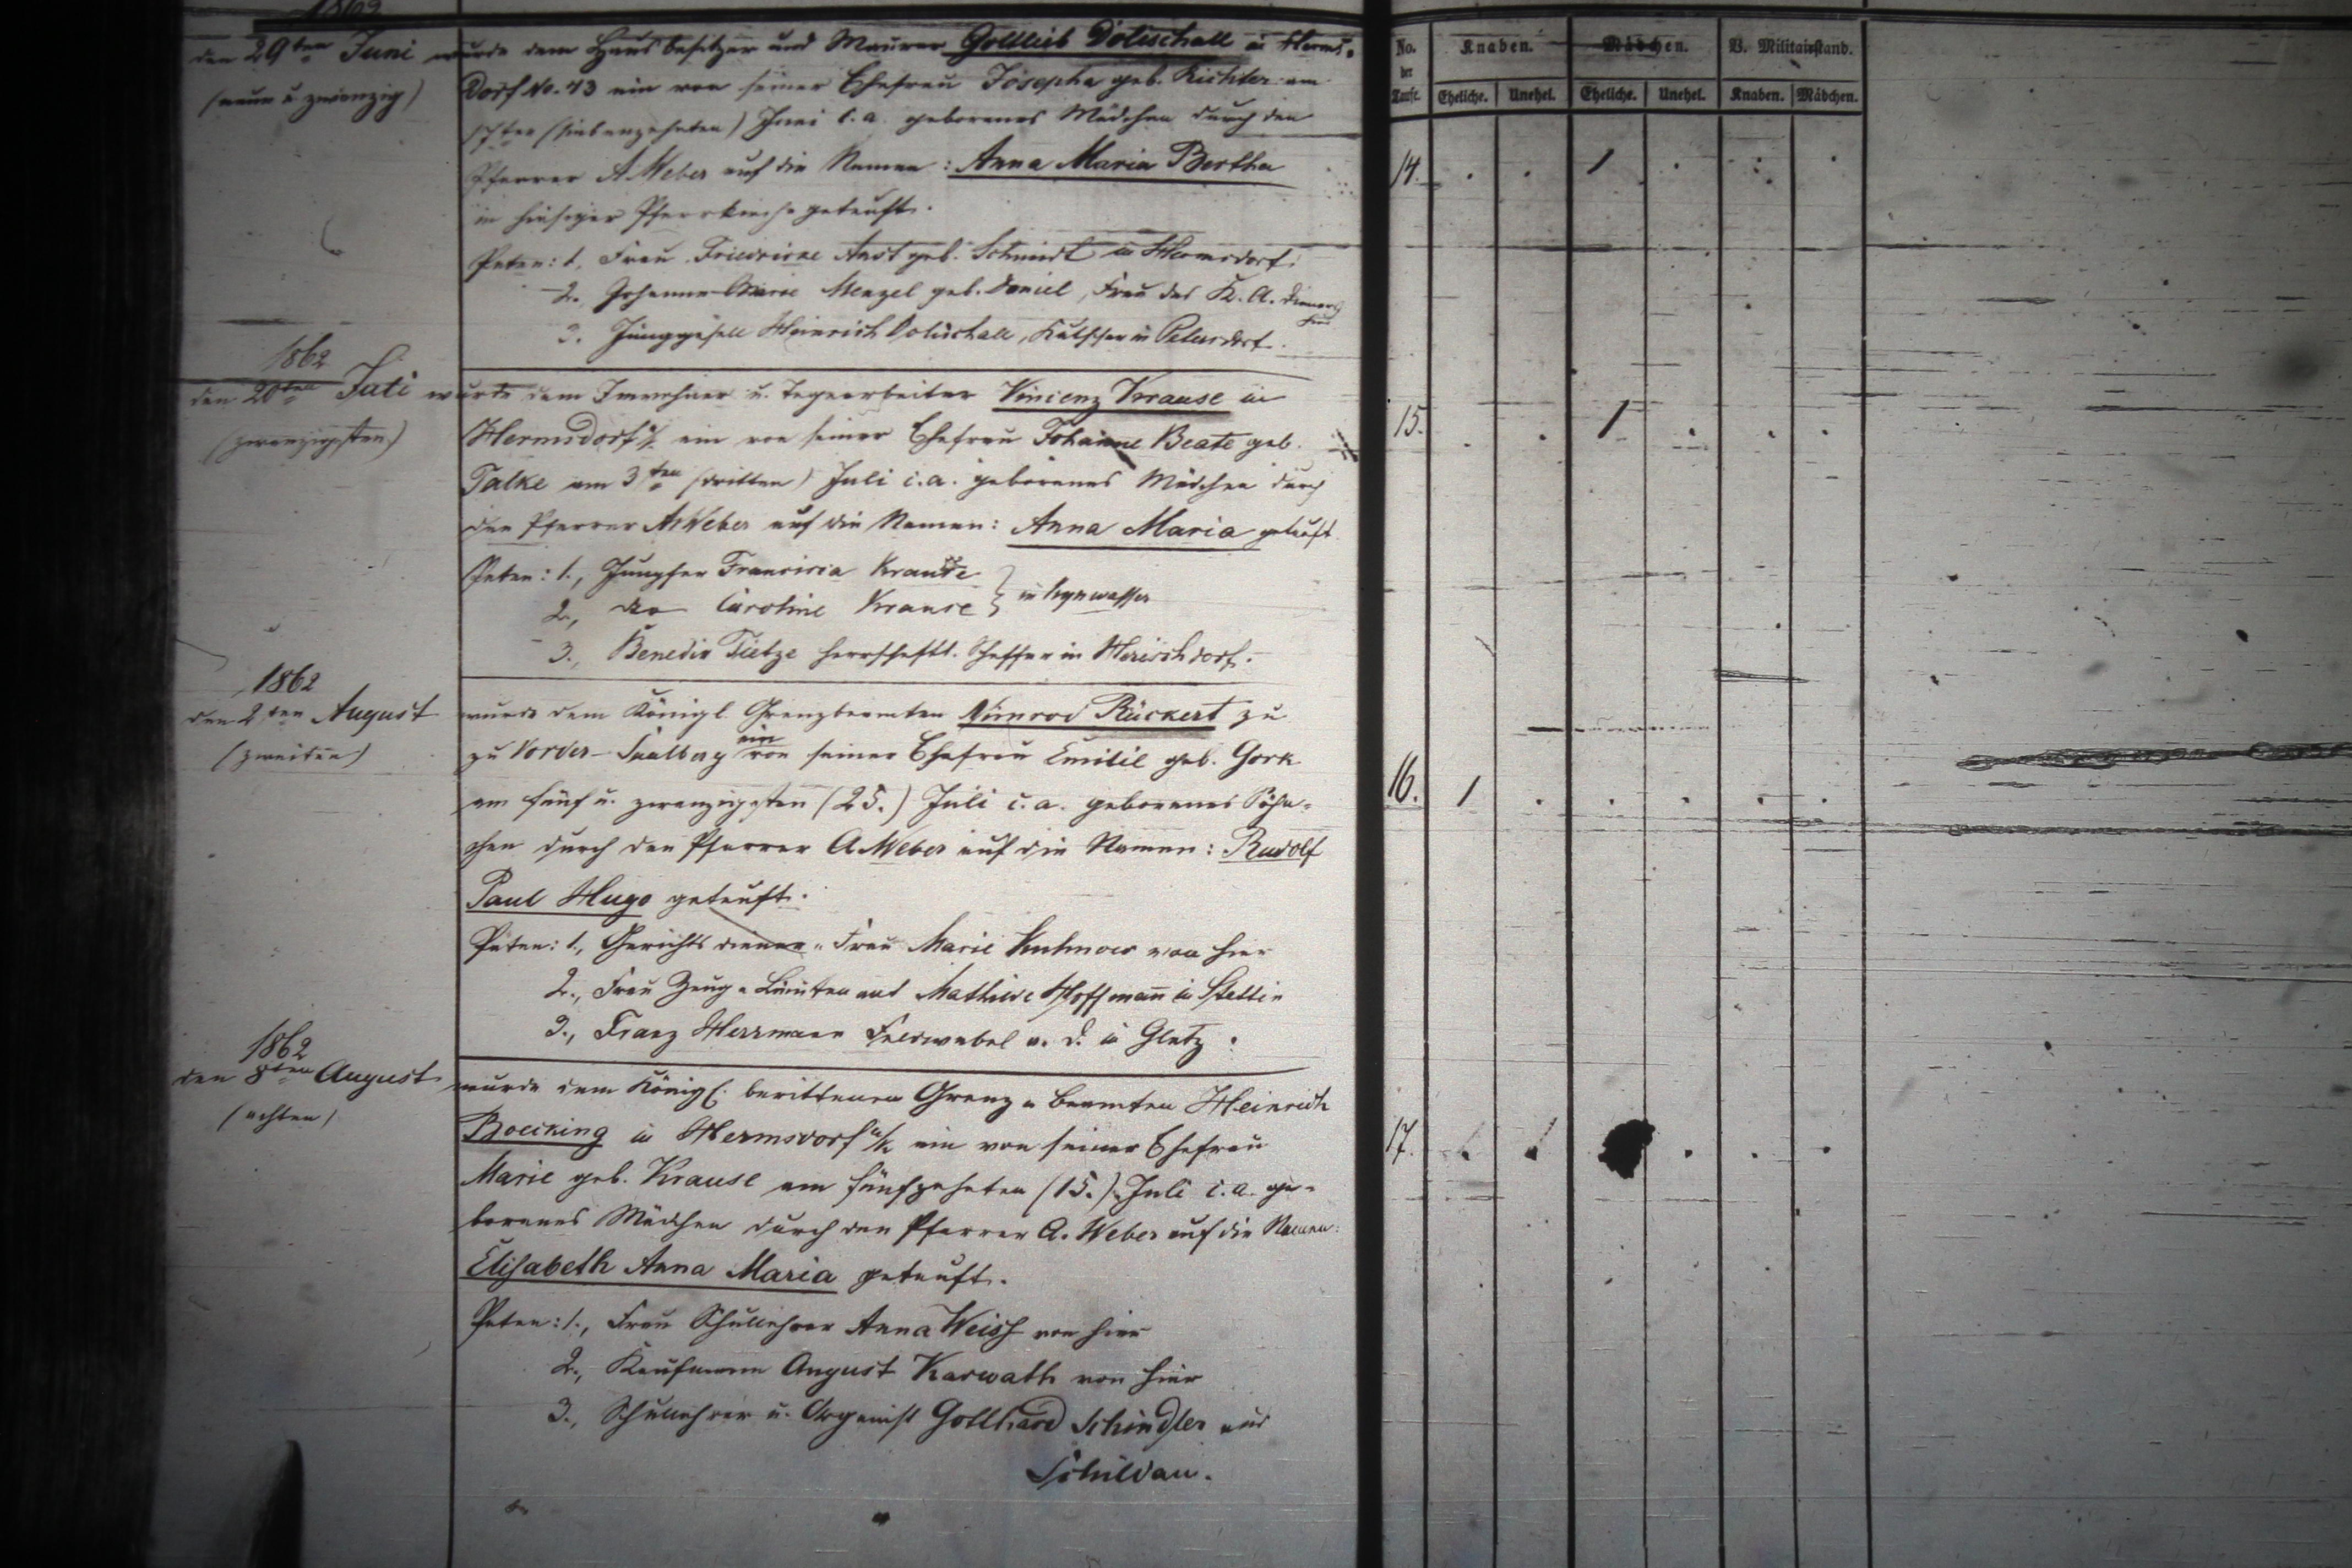 1862
den 29ten Juni
(neun u. zwanzig)
wurde dem Hausbesitzer und Maurer Gottlieb Dolischall in Herms-
dorf No. 43 ein von seiner Ehefrau Josepha geb. Richter am
17ten (siebenzehnten) Juni c. a. geborenes Mädchen durch den
Pfarrer A Weber auf die Namen: Anna Maria Bertha
in hiesiger Pfarrkirche getauft.
Paten: 1, Frau Friedricke Anst geb. Schmidt in Hermsdorf.
2., Johanne Marie Menzel geb. Daniel, Frau des K. A. Dieners
hier
3. Junggesell Heinrich Dolischall, Kutscher in Petersdorf.
1862
den 20ten Juli
(zwanzigsten)
wurde dem Inwohner u. Tagearbeiter Vincenz Krause in
Hermsdorf u/K ein von seiner Ehefrau Johanne Beate geb.
Talke am 3ten (dritten) Juli c. a. geborenes Mädchen durch
den Pfarrer A Weber auf die Namen: Anna Maria getauft
Paten: 1., Jungfer Francisca Krause
2., do Caroline Krause } in
3., Benedix Tietze herrschaftl. Schaffer in Herischdorf.
1862
den 2ten August
(zweiten)
wurde dem Königl. Grenzbeamten Nimrod Rückert zu
zu Vorder-Saalberg ein von seiner Ehefrau Emilie geb. Gork
am fünf u. zwanzigsten (25.) Juli c. a. geborenes Söhn-
chen durch den Pfarrer A. Weber auf die Namen: Rudolf
Paul Hugo getauft.
Paten: 1., Gerichtsdiener-Frau Marie Kuhnow von hier
2., Frau Zeug-Lieutenant Mathilde Hoffmann in Stettin
3., Franz Herrmann Feldwebel a. D. in Glatz.
1862
den 8ten August
(achten)
wurde dem Königl. berittenen Grenz-Beamten Heinrich
Boecking in Hermsdorf u/K ein von seiner Ehefrau
Marie geb. Krause am fünfzehnten (15.) Juli c. a. ge-
borenes Mädchen durch den Pfarrer A. Weber auf die Namen:
Elisabeth Anna Maria getauft.
Paten: 1., Frau Schullehrer Anna Weiss von hier
2., Kaufmann August Karwath von hier
3., Schullehrer u. Organist Gotthard Schindler aus
Schildau.
No. der Taufe.
Knaben. Mädchen. V. Militairstand.
Eheliche. Unehel. Eheliche. Unehel. Knaben. Mädchen.
14. . . 1 . . .
15. . . 1 . . .
16. 1 . . . . .
17. . . . . .